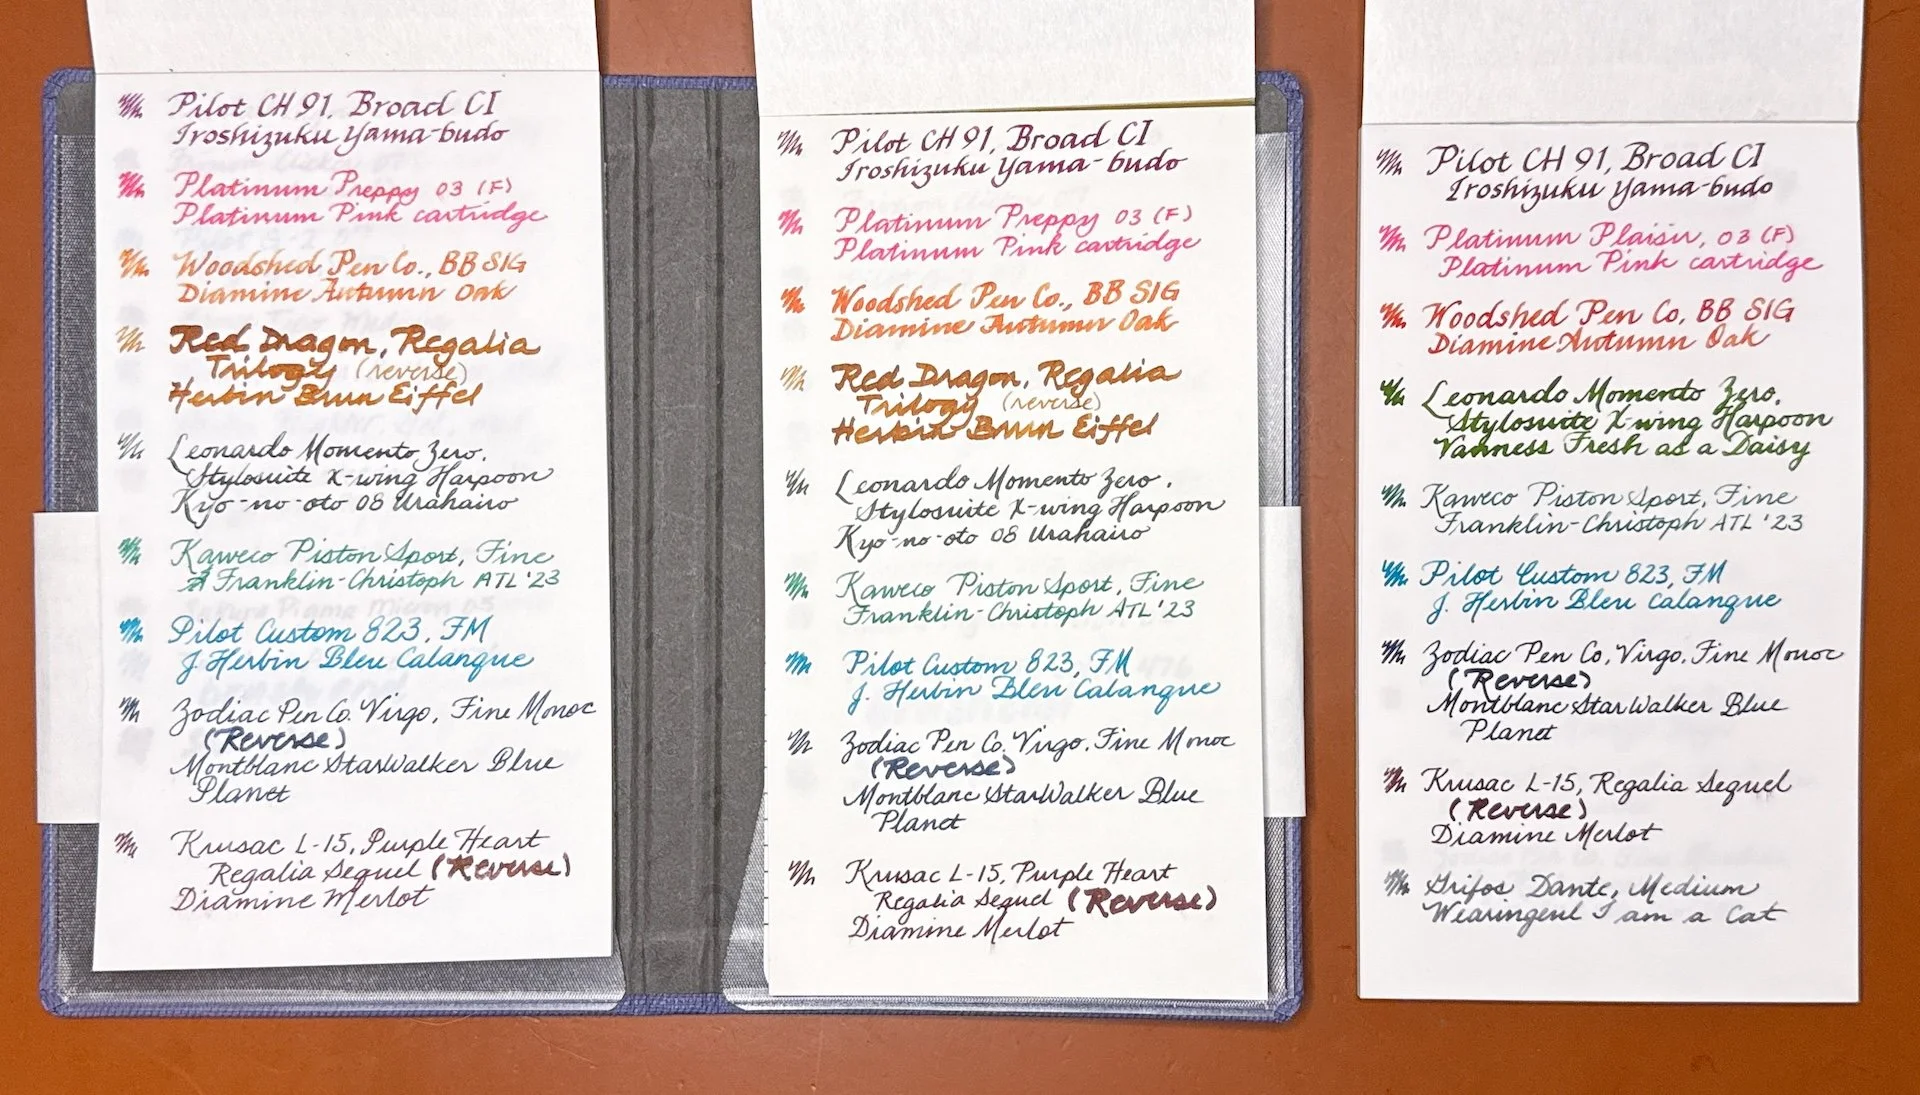 Pilot CH 91, Broad CI
Iroshizuku Yama-budo
Platinum Preppy 03 (F)
Platinum Pink cartridge
Woodshed Pen Co., BB SIG
Diamine Autumn Oak
Red Dragon, Regalia
Trilogy (reverse)
Herbin Brun Eiffel
Leonardo Momento Zero,
Stylosuite X-wing Harpoon
Kyo-no-oto 08 Urahairo
Kaweco Piston Sport, Fine
Franklin-Christoph ATL '23
Pilot Custom 823, FM
J. Herbin Bleu Calanque
Zodiac Pen Co. Virgo, Fine Monoc
(Reverse)
Montblanc StarWalker Blue
Planet
Krusac L-15, Purple Heart
Regalia Sequel (Reverse)
Diamine Merlot
Pilot CH 91, Broad CI
Iroshizuku Yama-budo
Platinum Preppy 03 (F)
Platinum Pink cartridge
Woodshed Pen Co., BB SIG
Diamine Autumn Oak
Red Dragon, Regalia
Trilogy (reverse)
Herbin Brun Eiffel
Leonardo Momento Zero,
Stylosuite X-wing Harpoon
Kyo-no-oto 08 Urahairo
Kaweco Piston Sport, Fine
Franklin-Christoph ATL '23
Pilot Custom 823, FM
J. Herbin Bleu Calanque
Zodiac Pen Co. Virgo, Fine Monoc
(Reverse)
Montblanc StarWalker Blue
Planet
Krusac L-15, Purple Heart
Regalia Sequel (Reverse)
Diamine Merlot
Pilot CH 91, Broad CI
Iroshizuku Yama-budo
Platinum Plaisir, 03 (F)
Platinum Pink cartridge
Woodshed Pen Co, BB SIG
Diamine Autumn Oak
Leonardo Momento Zero,
Stylosuite X-wing Harpoon
Vanness Fresh as a Daisy
Kaweco Piston Sport, Fine
Franklin-Christoph ATL '23
Pilot Custom 823, FM
J. Herbin Bleu Calanque
Zodiac Pen Co, Virgo, Fine Monoc
(Reverse)
Montblanc StarWalker Blue
Planet
Krusac L-15, Regalia Sequel
(Reverse)
Diamine Merlot
Grifos Dante, Medium
Wearingeul I am a Cat